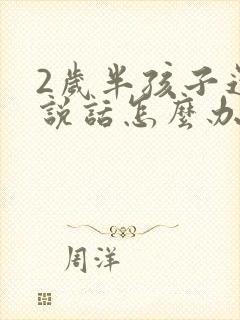 2歲半孩子還
說話怎麼办
周洋